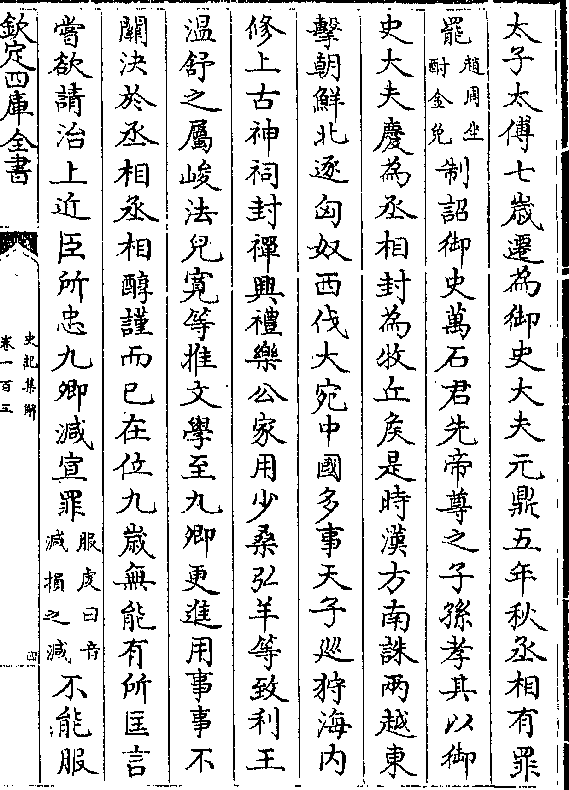 太子太傅七歲遷為御史大夫元鼎五年秋丞相有罪
罷趙周坐酎金免制詔御史萬石君先帝尊之子孫孝其以御
史大夫慶為丞相封為牧丘侯是時漢方南誅兩越東
擊朝鮮北逐匈奴西伐大宛中國多事天子廵狩海内
修上古神祠封禪興禮樂公家用少桑弘羊等致利王
溫舒之屬峻法兒寛等推文學至九卿更進用事事不
關決於丞相丞相醇謹而已在位九歲無能有所匡言
嘗欲請治上近臣所忠九卿減宣罪服虔曰音減損之減不能服
欽定四庫全書
史記集解
卷一百三
四